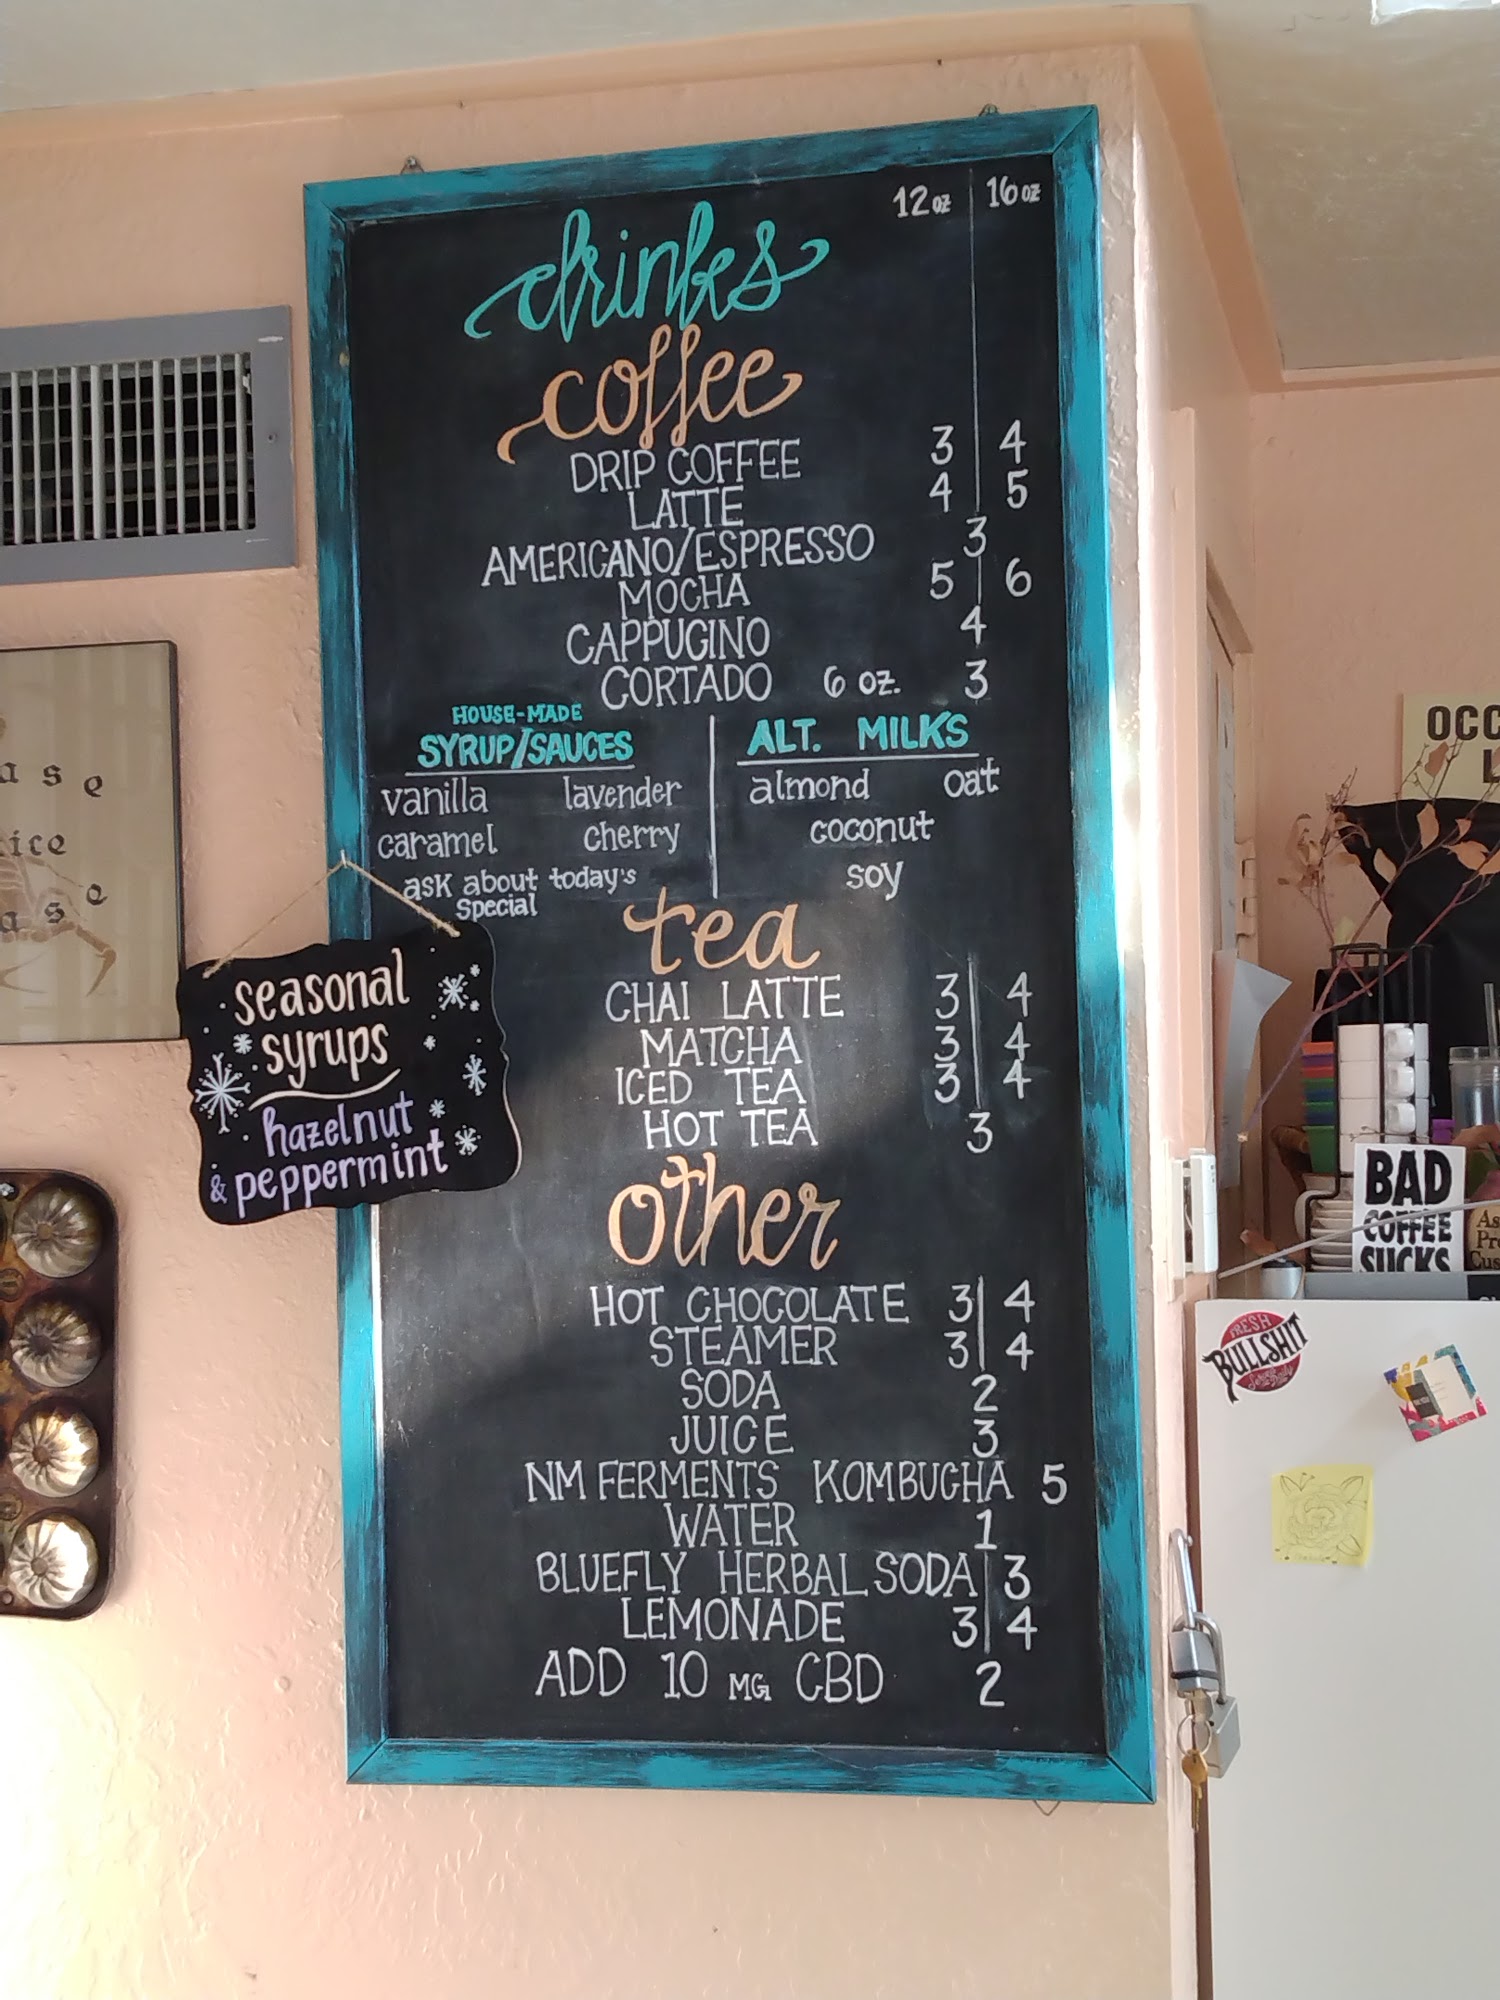 12 oz 16 oz
drinks
coffee
DRIP COFFEE 3 4
LATTE 4 5
AMERICANO/ESPRESSO 3
MOCHA 5 6
CAPPUCINO 4
CORTADO 6 OZ. 3
HOUSE-MADE
SYRUP/SAUCES
vanilla lavender
caramel cherry
ask about today's
special
ALT. MILKS
almond oat
coconut
soy
tea
CHAI LATTE 3 4
MATCHA 3 4
ICED TEA 3 4
HOT TEA 3
other
HOT CHOCOLATE 3 4
STEAMER 3 4
SODA 2
JUICE 3
NM FERMENTS KOMBUCHA 5
WATER 1
BLUEFLY HERBAL SODA 3
LEMONADE 3 4
ADD 10 MG CBD 2
seasonal
syrups
hazelnut
& peppermint
ase
ice
ase
OCC
BAD
COFFEE
SUCKS
FRESH
BULLSHIT